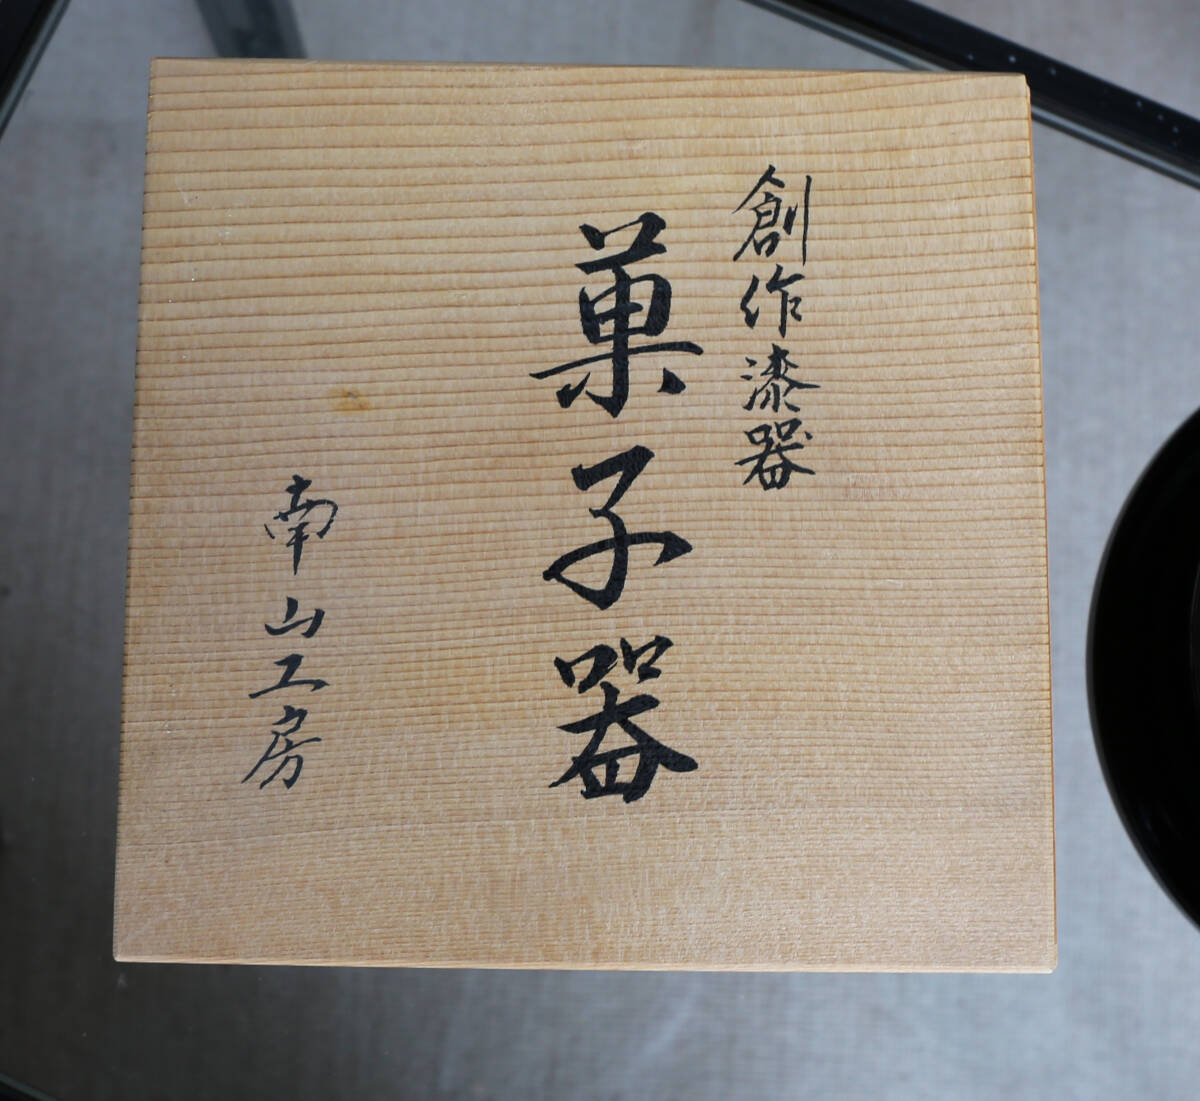 創作漆器
菓子器
南山工房